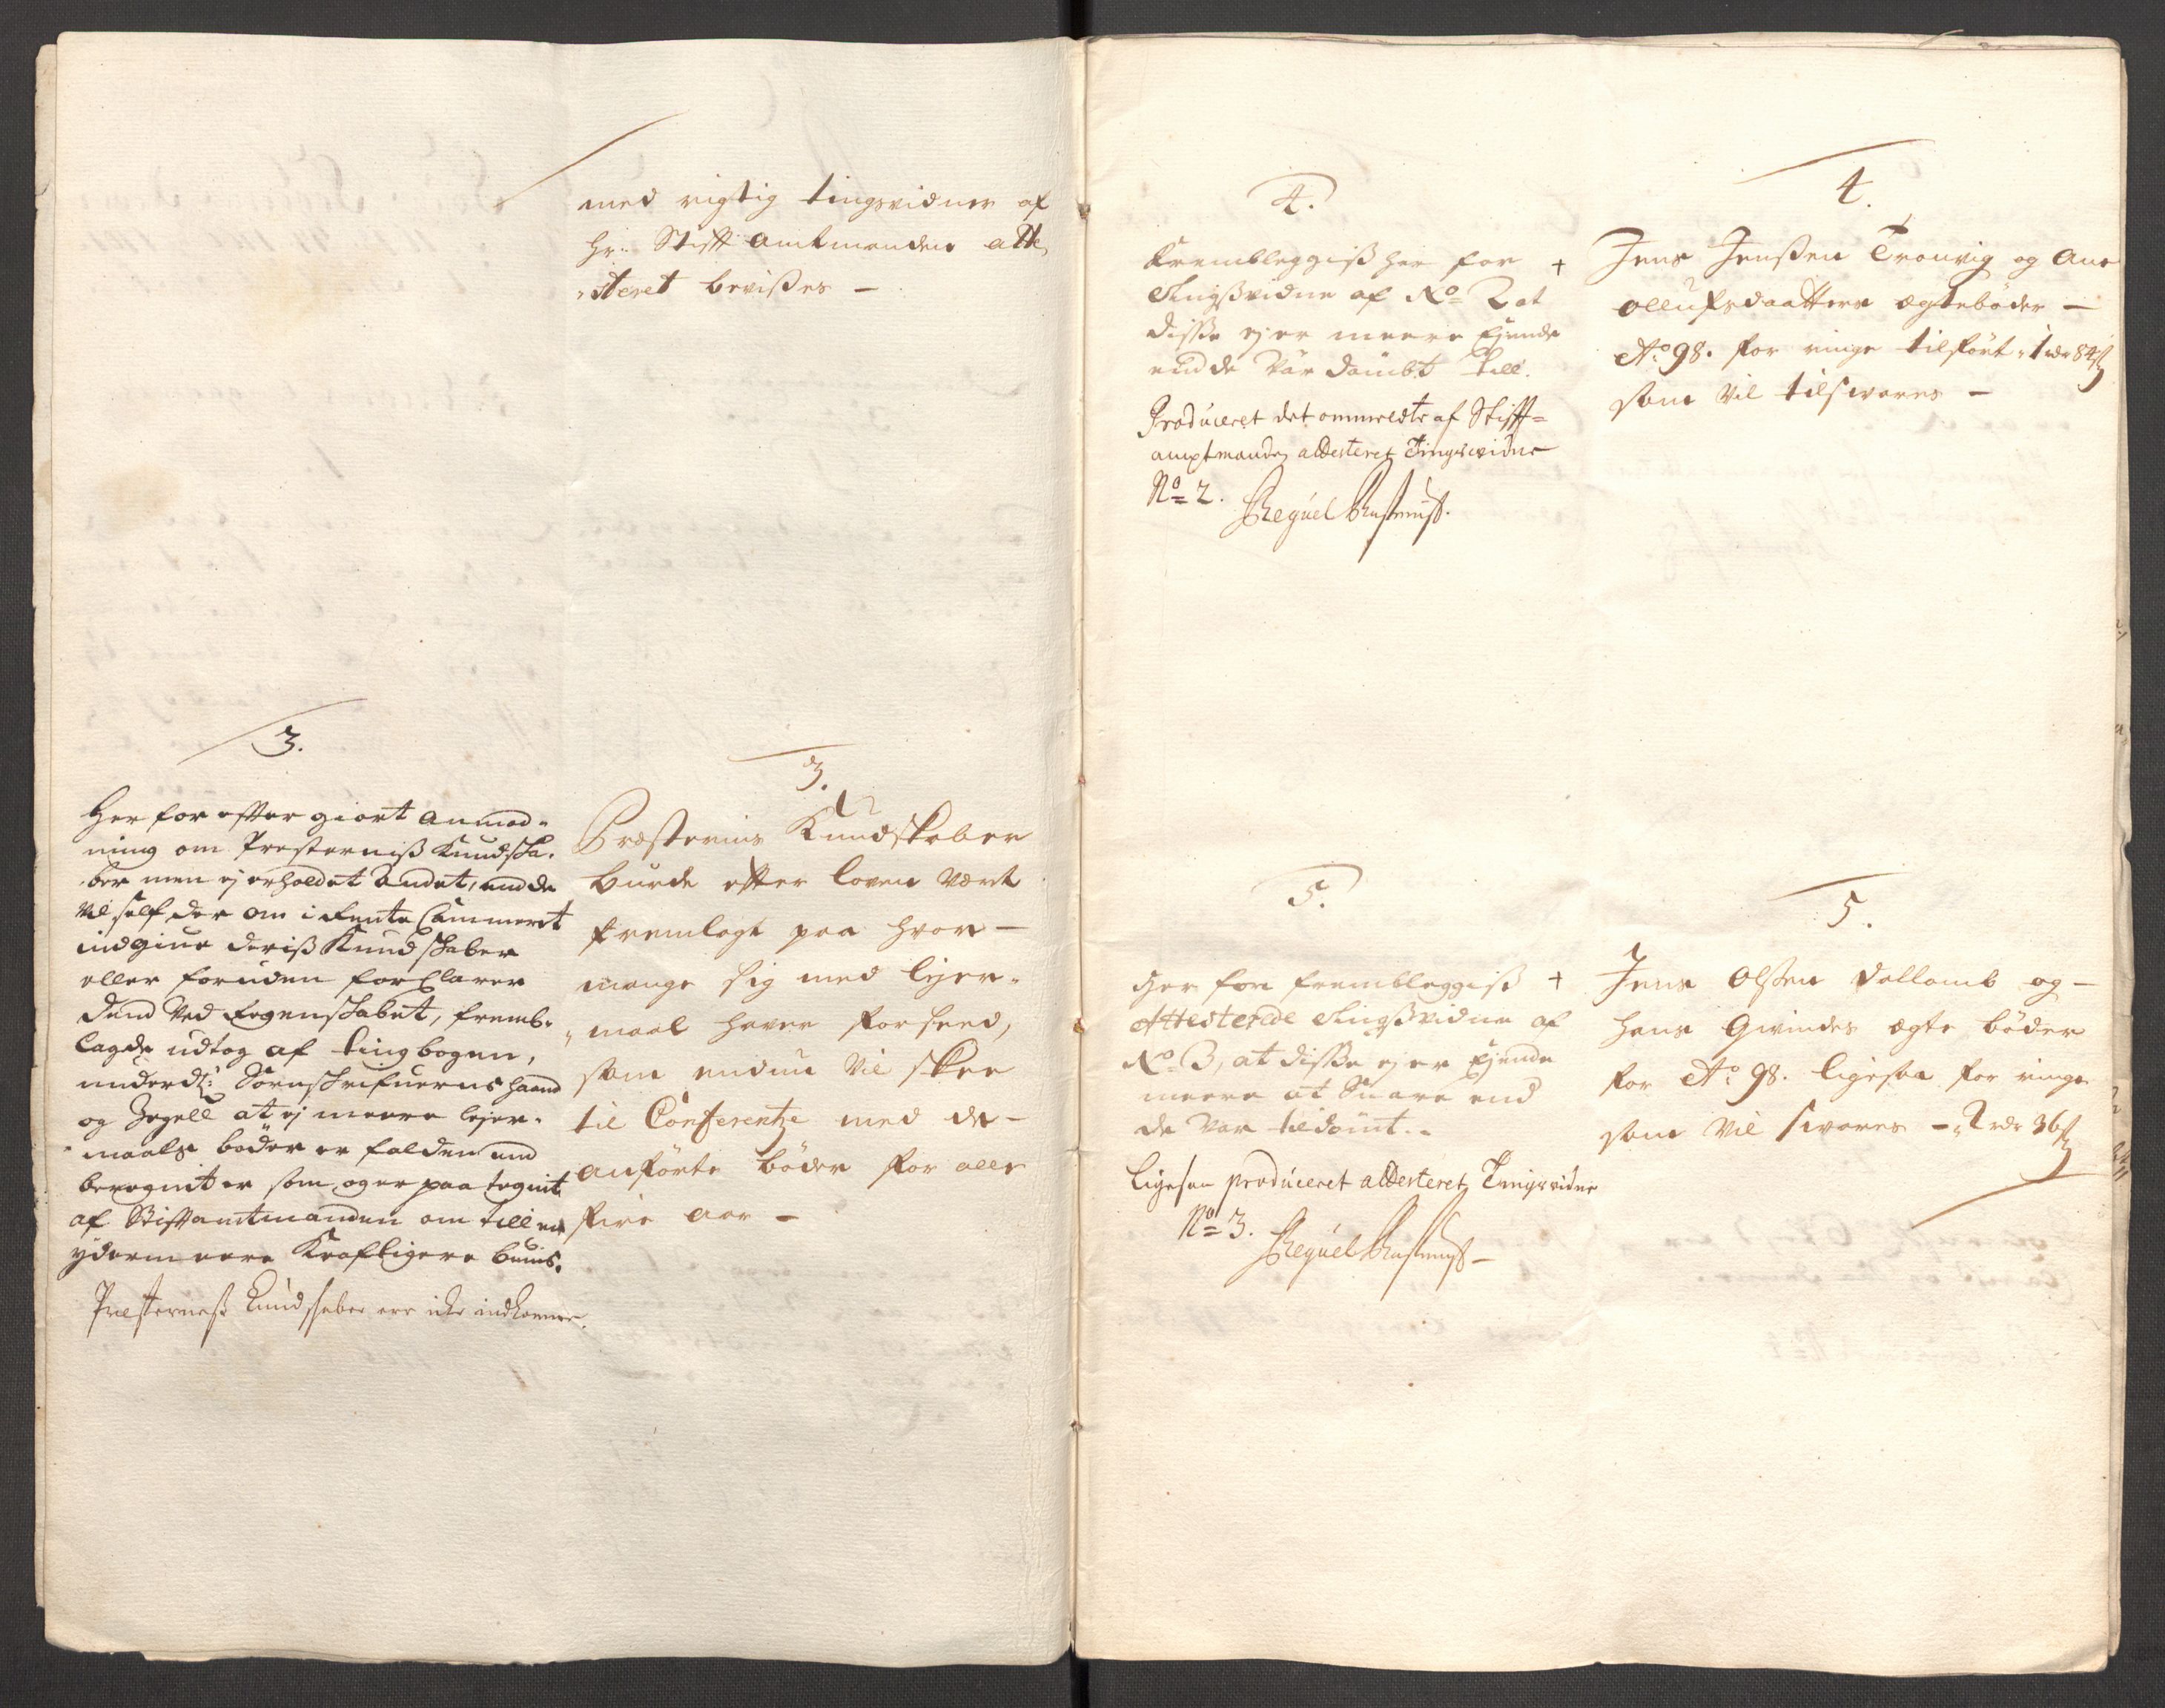 med rigtig tingsvidner af
hr: Stifft amtmanden atte
"steret bevißes -
3.
Her for efter giort anmod-
ning om Presterniß Kundska-
ber men ej erholdet Andet, end de
vil self der om i Rente Cammeret
indgiue deriß Kundskaber
eller foruden forklarer
dend ved Regenskabet, fremb-
lagde udtog af tingbogen,
under dt: Sornskrifuerens haand
og Zegell at ej meere lejer-
maals bøder er falden end
beregnit er som og er paa tegnit
af Stiftamtmanden om till en
ydermeere Kraftigere beuis.
Presterneß Kundskaber ere icke indkomne.
3.
Præsternis Kundskaber
burde efter loven vært
fremlagt paa hvor-
mange sig med lejer-
"maal haver forseed,
som endnu vil skee
til Conferentze med de-
anførte bøder for alle
fire aar -
4.
Frembleggiß her for +
Tingßvidne af No 2 at
diße ej er meere Ejende
end de var dømbt till.
Produceret det ommeldte af Stifft-
amptmanden attesteret Tingsvidne
No 2.
4.
Jens Jenßen Tronvig og Ane
ollufsdaatters ægtebøder -
Ao 98. for ringe tilført "1 rdr 84 ß
som vil tilsvares -
5.
Her for frembleggiß +
Attesterede Tingßvidne af
No 3, at diße ej er Ejende
meere at Suare end
de var tildømt.-
Ligesaa produceret attesteret Tingsvidne
No 3.
5.
Jens Olßen Dallamb og -
hans Qvindes ægte bøder
for Ao 98. ligesaa for ringe
som vil svares - "2 rdr 36 ß